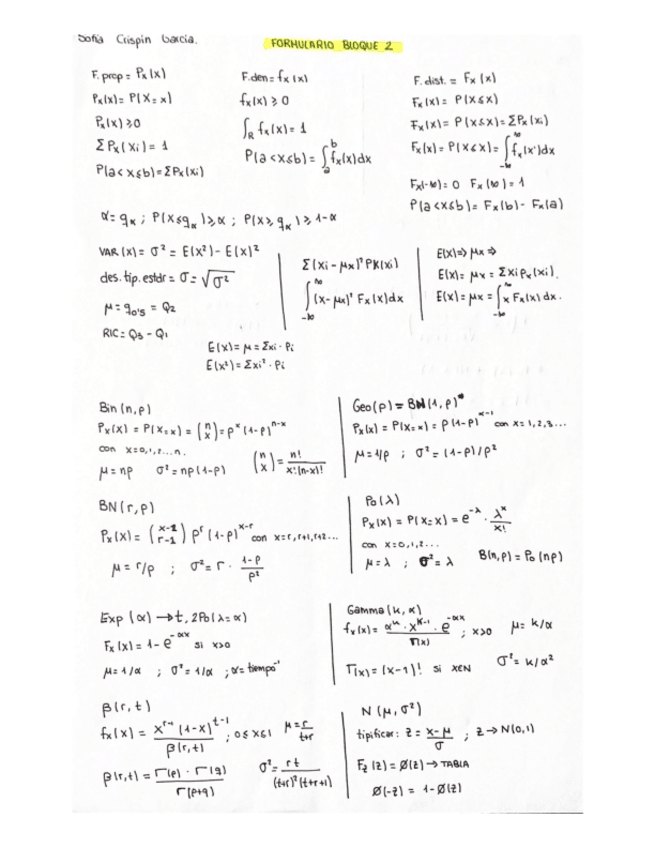 Sofía Crispin García.
FORMULARIO BLOQUE 2
F. prop = Pₓ(x)
Pₓ(x) = P(X = x)
Pₓ(x) ≥ 0
Σ Pₓ(xi) = 1
P(a < x ≤ b) = ΣPₓ(xi)
F. den = fₓ(x)
fₓ(x) ≥ 0
∫_R fₓ(x) = 1
P(a < x ≤ b) = ∫_a^b fₓ(x)dx
F. dist. = Fₓ(x)
Fₓ(x) = P(X ≤ x)
Fₓ(x) = P(x ≤ x) = ΣPₓ(xi)
Fₓ(x) = P(x ≤ x) = ∫_-∞^∞ fₓ(x')dx
Fₓ(-∞) = 0 Fₓ(∞) = 1
P(a < x ≤ b) = Fₓ(b) - Fₓ(a)
α = qα ; P(X ≤ qα) ≥ α ; P(X ≥ qα) ≥ 1-α
VAR(x) = σ² = E(x²) - E(x)²
des. tip. estdr = σ = √σ²
μ = q₀'₅ = Q2
RIC = Q3 - Q1
E(x) = μ = Σxi · Pi
E(x²) = Σxi² · Pi
Σ(xi - μx)² PK(xi)
∫_-∞^∞ (x-μx)² Fₓ(x)dx
E(x) ⇒ μx ⇒
E(x) = μx = Σxi pₓ(xi).
E(x) = μx = ∫_-∞^∞ x Fₓ(x) dx.
Bin(n,p)
Pₓ(x) = P(X = x) = (n x) = p^x (1-p)^n-x
con x=0,1,2,...n.
μ = np σ² = np(1-p) (n x) = n!/x!(n-x)!
Geo(p) = BN(1,p)*
Pₓ(x) = P(X = x) = p(1-p)^x-1 con x=1,2,3...
μ = 1/p ; σ² = (1-p)/p²
BN(r,p)
Pₓ(x) = (x-1 r-1) p^r (1-p)^x-r con x=r,r+1,r+2...
μ = r/p ; σ² = r · 1-p/p²
Po(λ)
Pₓ(x) = P(X = x) = e^-λ · λ^x/x!
con x=0,1,2...
μ = λ ; σ² = λ B(n,p) = Po(np)
Exp(α) → t, 2Po(λ=α)
Fₓ(x) = 1 - e^-αx si x>0
μ = 1/α ; σ² = 1/α ; α = tiempo⁻¹
Gamma(k,α)
fₓ(x) = α^k · x^k-1 · e^-αx / Γ(x) ; x>0 μ = k/α
Γ(x) = (x-1)! si x∈N σ² = k/α²
β(r,t)
fₓ(x) = x^r-1 (1-x)^t-1 / β(r,t) ; 0≤x≤1 μ = r/t+r
β(r,t) = Γ(p) · Γ(q) / Γ(p+q) σ² = rt/(t+r)²(t+r+1)
N(μ,σ²)
tipificar: z = x-μ/σ ; z → N(0,1)
F_z(z) = Ø(z) → TABLA
Ø(-z) = 1 - Ø(z)